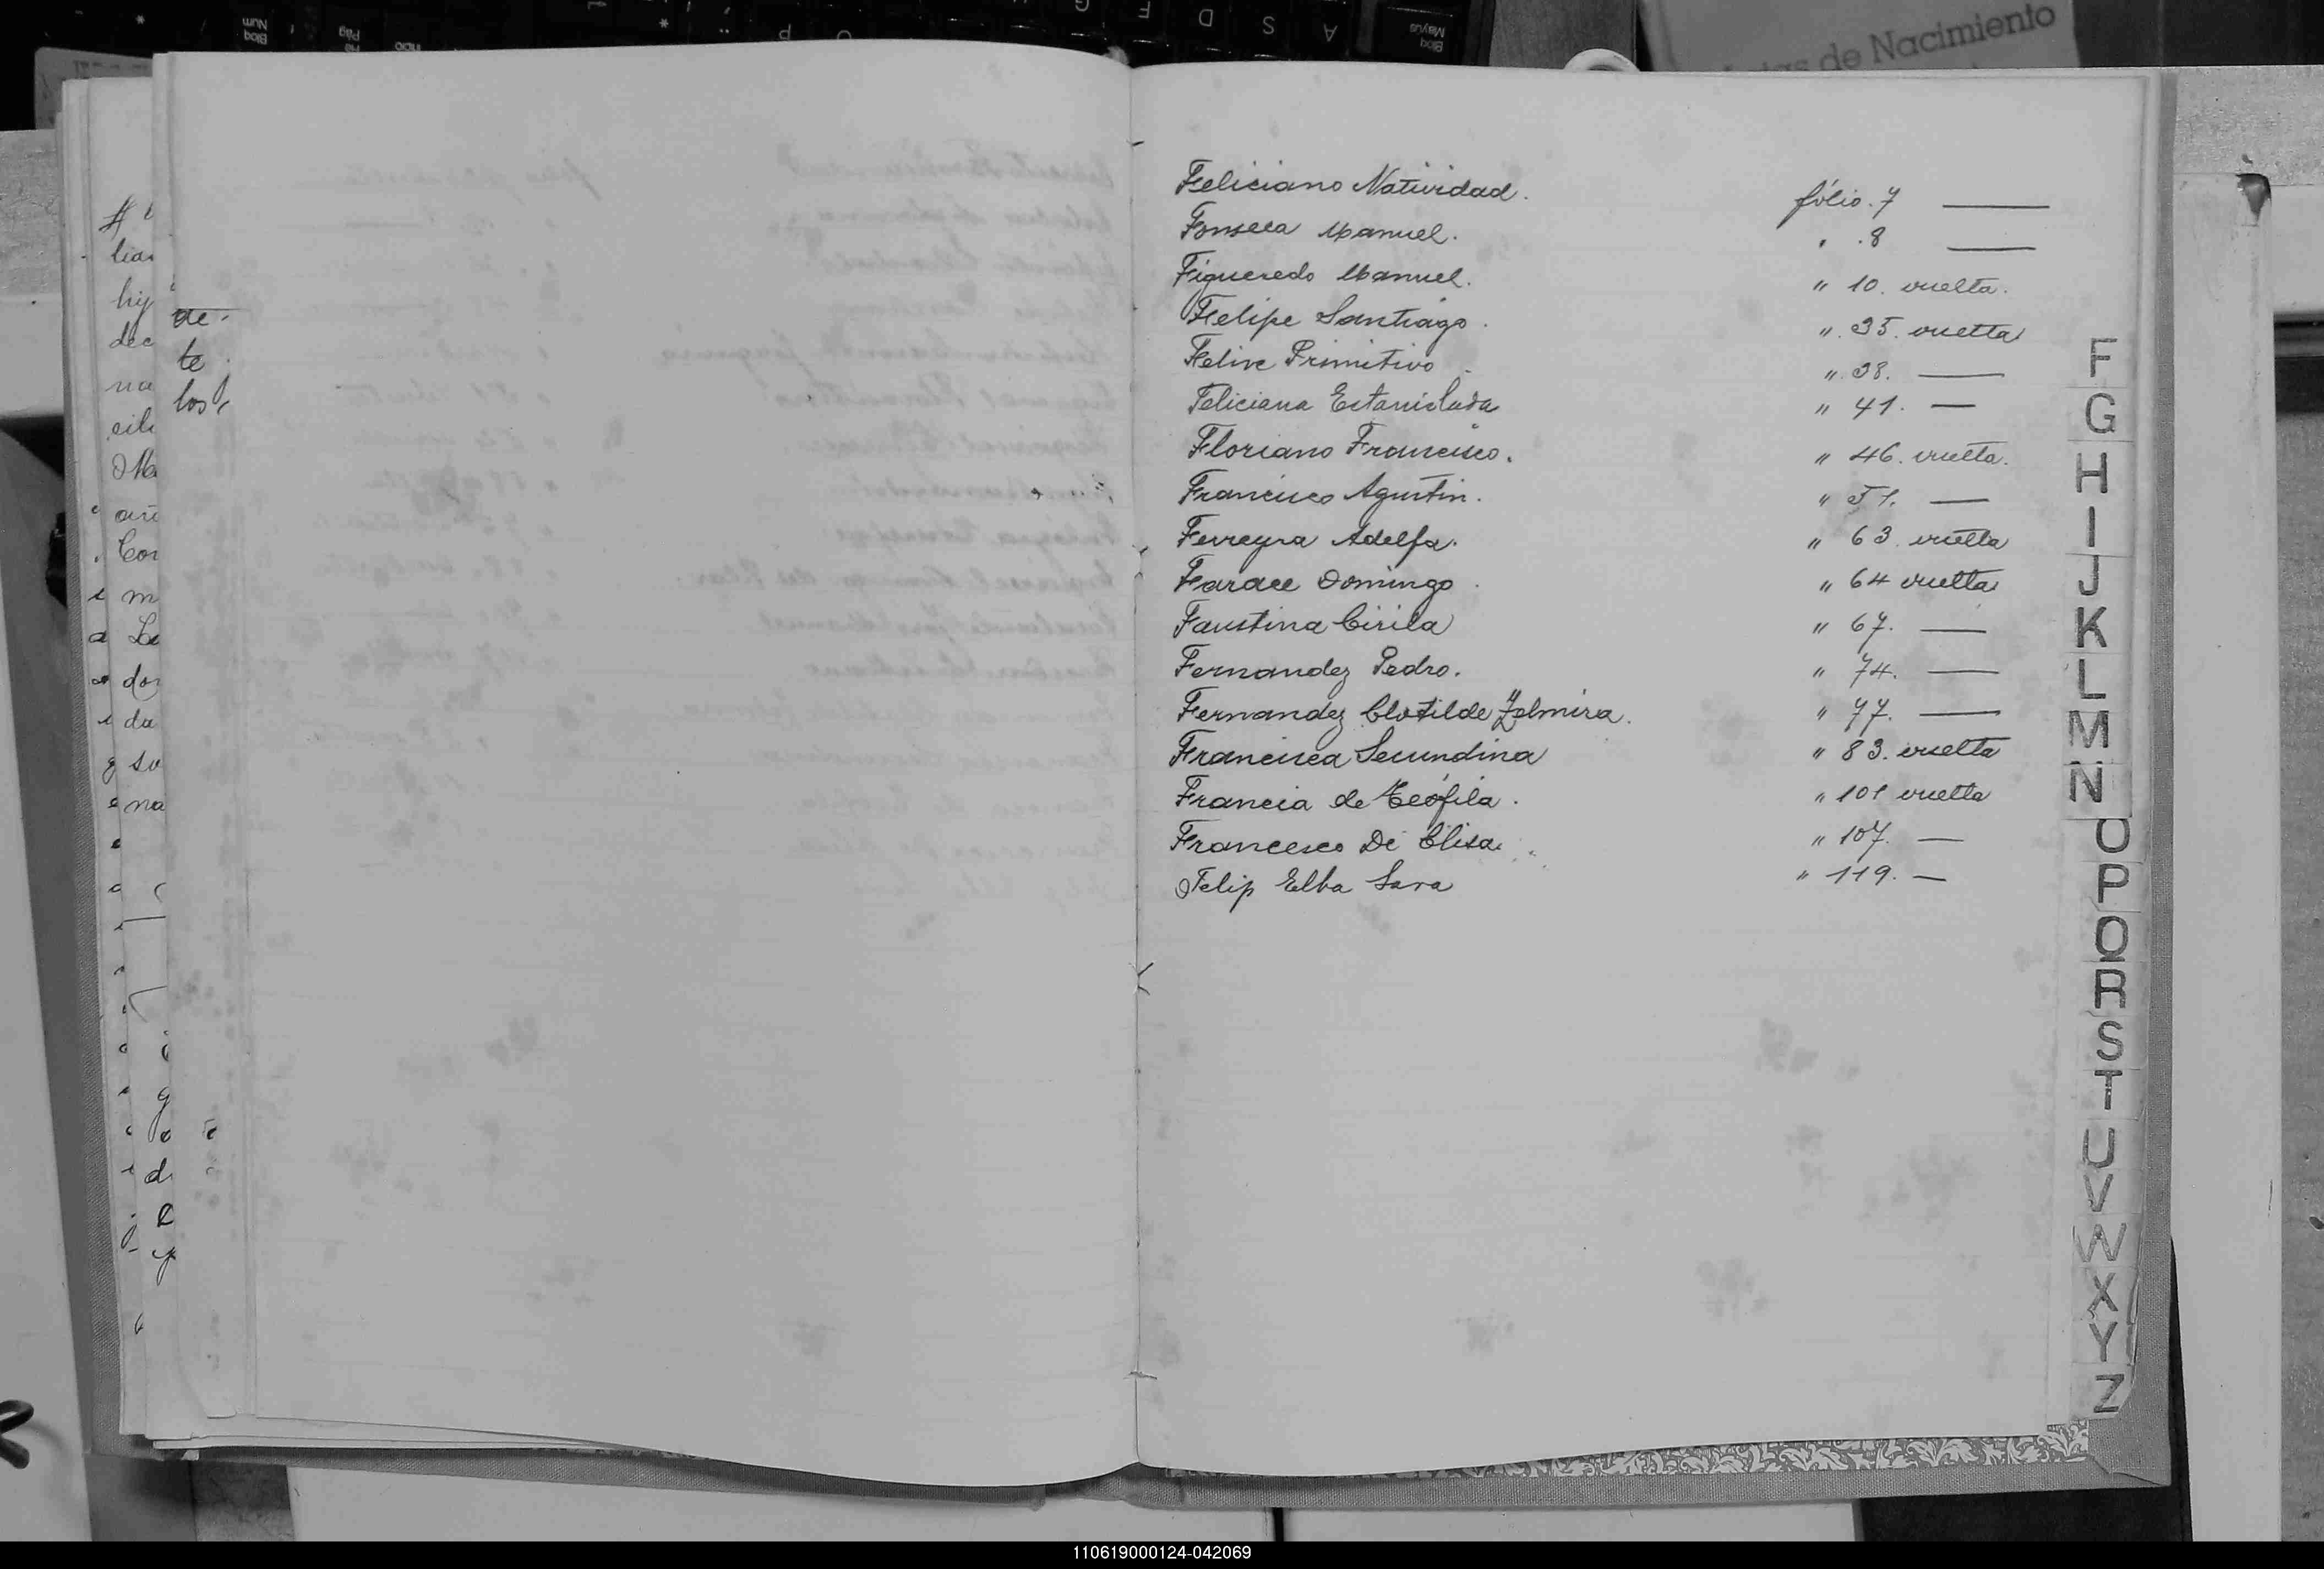 de Nacimiento
de
te
los
Feliciano Natividad. fólio. 7 ———
Fonseca Manuel. " . 8 ———
Figueredo Manuel. " 10. vuelta.
Felipe Santiago. " 35. vuelta
Felive Primitivo " 38. ———
Feliciana Estanislada " 41. ——
Floriano Francisco. " 46. vuelta.
Francisco Agustin. " 51. ——
Ferreyra Adelfa. " 63 vuelta
Farace Domingo " 64 vuelta
Faustina Cirila " 67. ——
Fernandez Pedro. " 74. ——
Fernandez Clotilde Zelmira. " 77. ———
Francisca Secundina " 83. vuelta
Francia de Teófila. " 101 vuelta
Francesco Di Elisa. " 107. ——
Felip Elba Sara " 119. —
F
G
H
I
J
K
L
M
N
O
P
Q
R
S
T
U
V
W
X
Y
Z
110619000124-042069